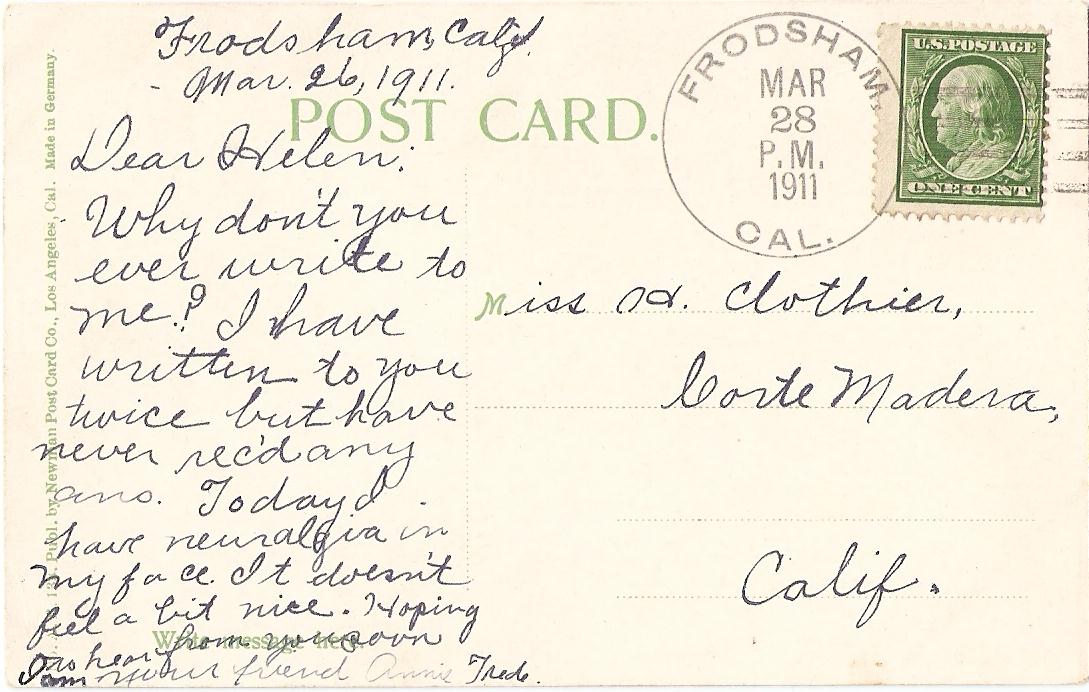 Frodsham, Calif.
Mar. 26, 1911.
POST CARD.
Dear Helen:
Why don't you
ever write to
me? I have
written to you
twice but have
never rec'd any
ans. Today I
have neuralgia in
my face. It doesn't
feel a bit nice. Hoping
to hear from you soon
I am your friend Annie Trede.
Write message here.
Publ. by Newman Post Card Co., Los Angeles, Cal. Made in Germany.
FRODSHAM,
MAR
28
P.M.
1911
CAL.
U.S. POSTAGE
ONE CENT
Miss H. Clothier,
Corte Madera,
Calif.